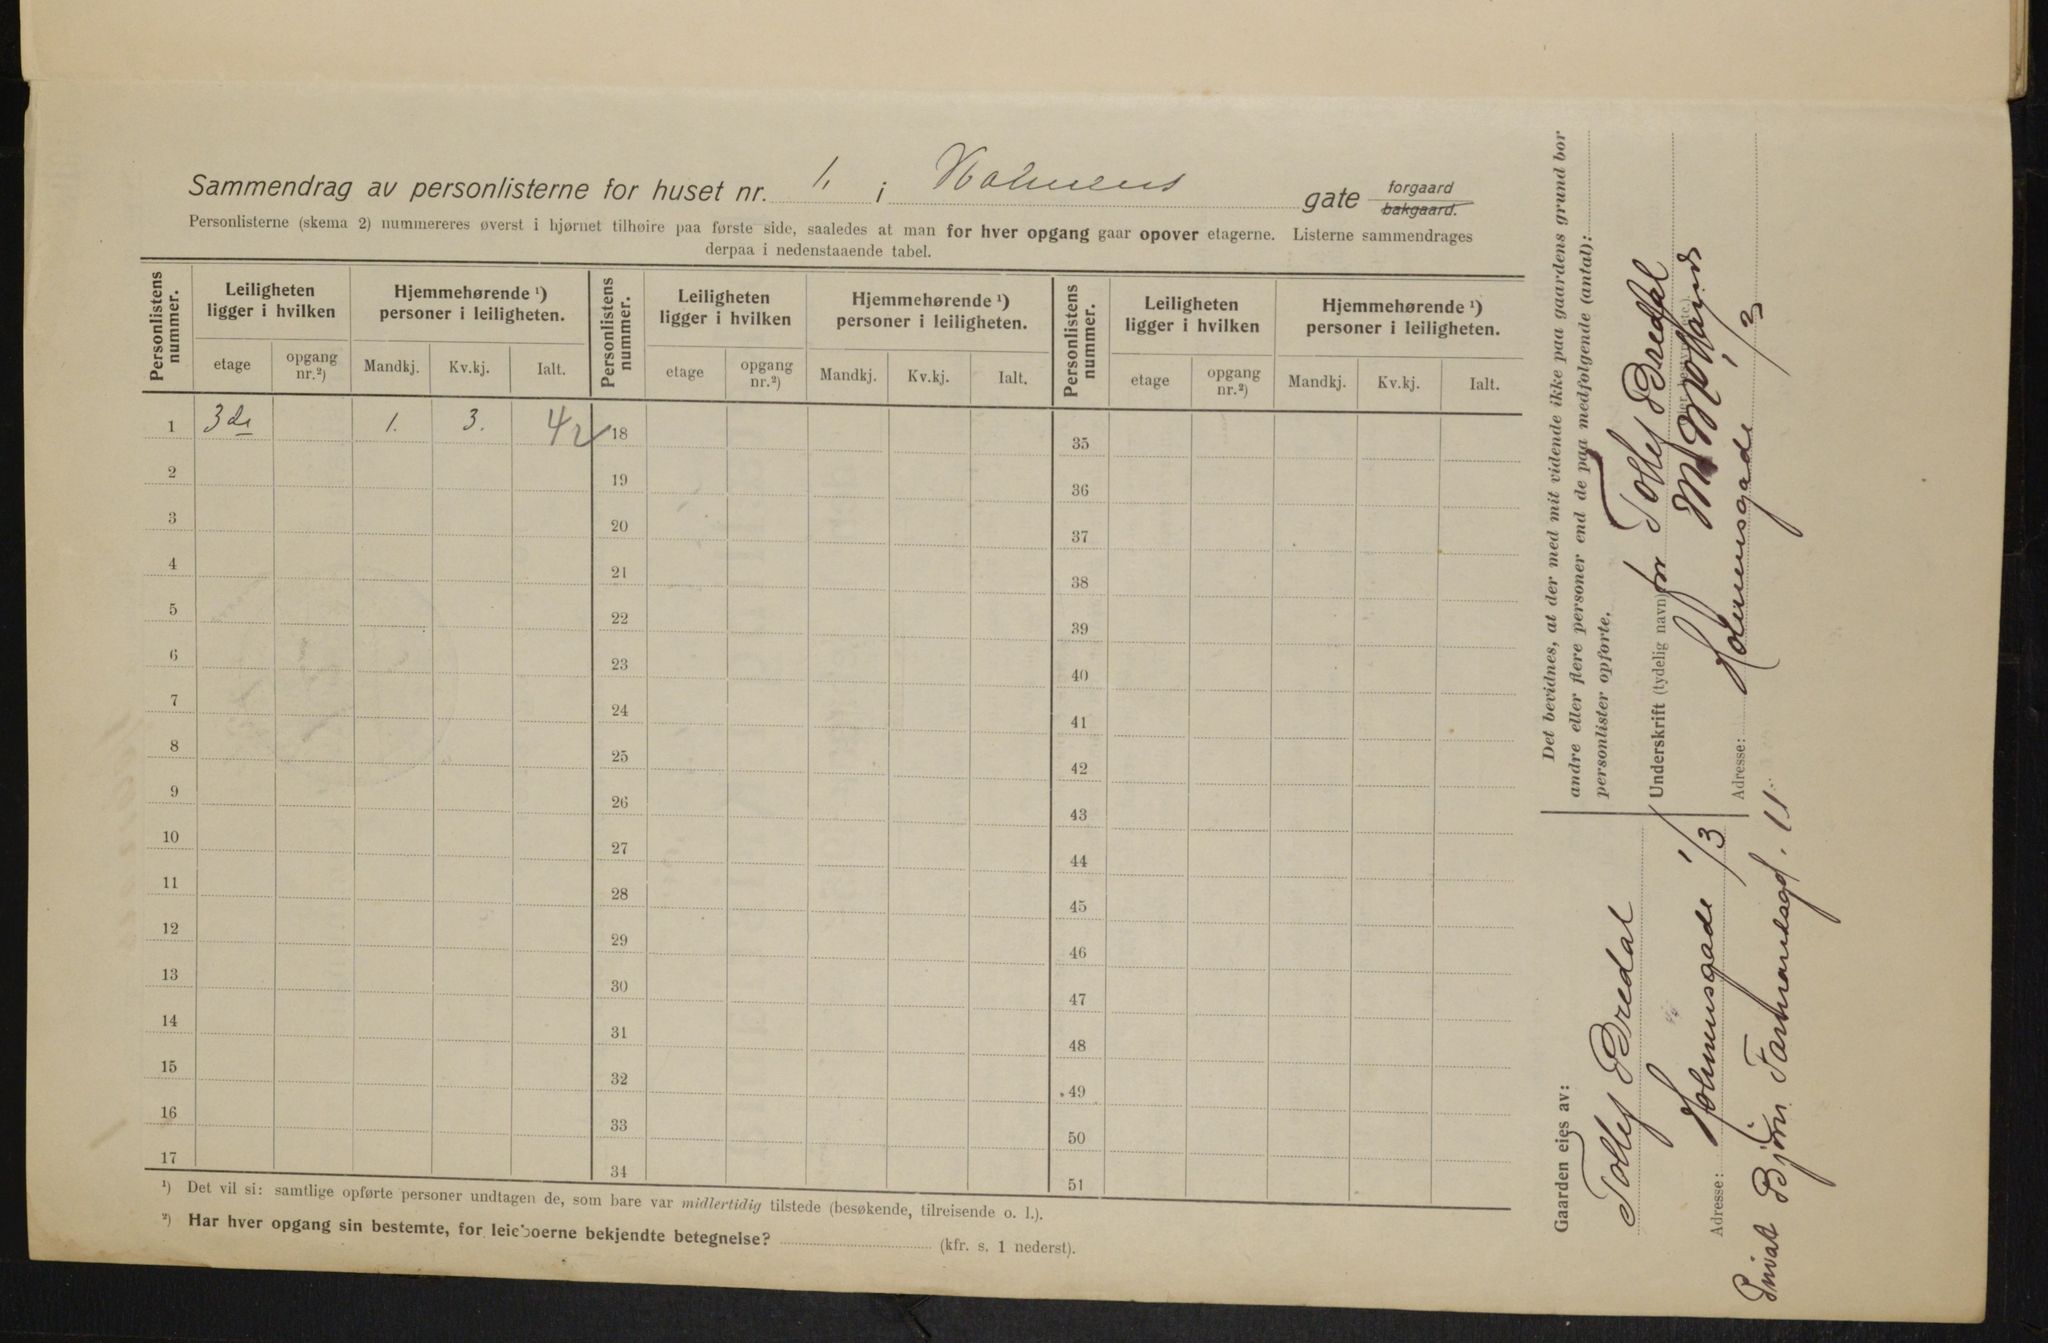 Sammendrag av personlisterne for huset nr. 1. i Holmens gate forgaard bakgaard.
Personlisterne (skema 2) nummereres øverst i hjørnet tilhøire paa første side, saaledes at man for hver opgang gaar opover etagerne. Listerne sammendrages
derpaa i nedenstaaende tabel.
Personlistens nummer. Leiligheten ligger i hvilken Hjemmehørende ¹) personer i leiligheten. Personlistens nummer. Leiligheten ligger i hvilken Hjemmehørende ¹) personer i leiligheten. Personlistens nummer. Leiligheten ligger i hvilken Hjemmehørende ¹) personer i leiligheten.
etage opgang nr.²) Mandkj. Kv.kj. Ialt. etage opgang nr.²) Mandkj. Kv.kj. Ialt. etage opgang nr.²) Mandkj. Kv.kj. Ialt.
1 3de 1. 3. 4 18 35
2 19 36
3 20 37
4 21 38
5 22 39
6 23 40
7 24 41
8 25 42
9 26 43
10 27 44
11 28 45
12 29 46
13 30 47
14 31 48
15 32 49
16 33 50
17 34 51
¹) Det vil si: samtlige opførte personer undtagen de, som bare var midlertidig tilstede (besøkende, tilreisende o. l.).
²) Har hver opgang sin bestemte, for leieboerne bekjendte betegnelse? (kfr. s. 1 nederst).
Det bevidnes, at der med mit vidende ikke paa gaardens grund bor
andre eller flere personer end de paa medfølgende (antal):
personlister opførte.
Underskrift (tydelig navn) for Tollef Bredal
Adresse: Holmensgade 1/3
Gaarden eies av:
Tollef Bredal
Adresse: Holmensgade 1/3
Privat Bjørn Farmandsgd. 11.